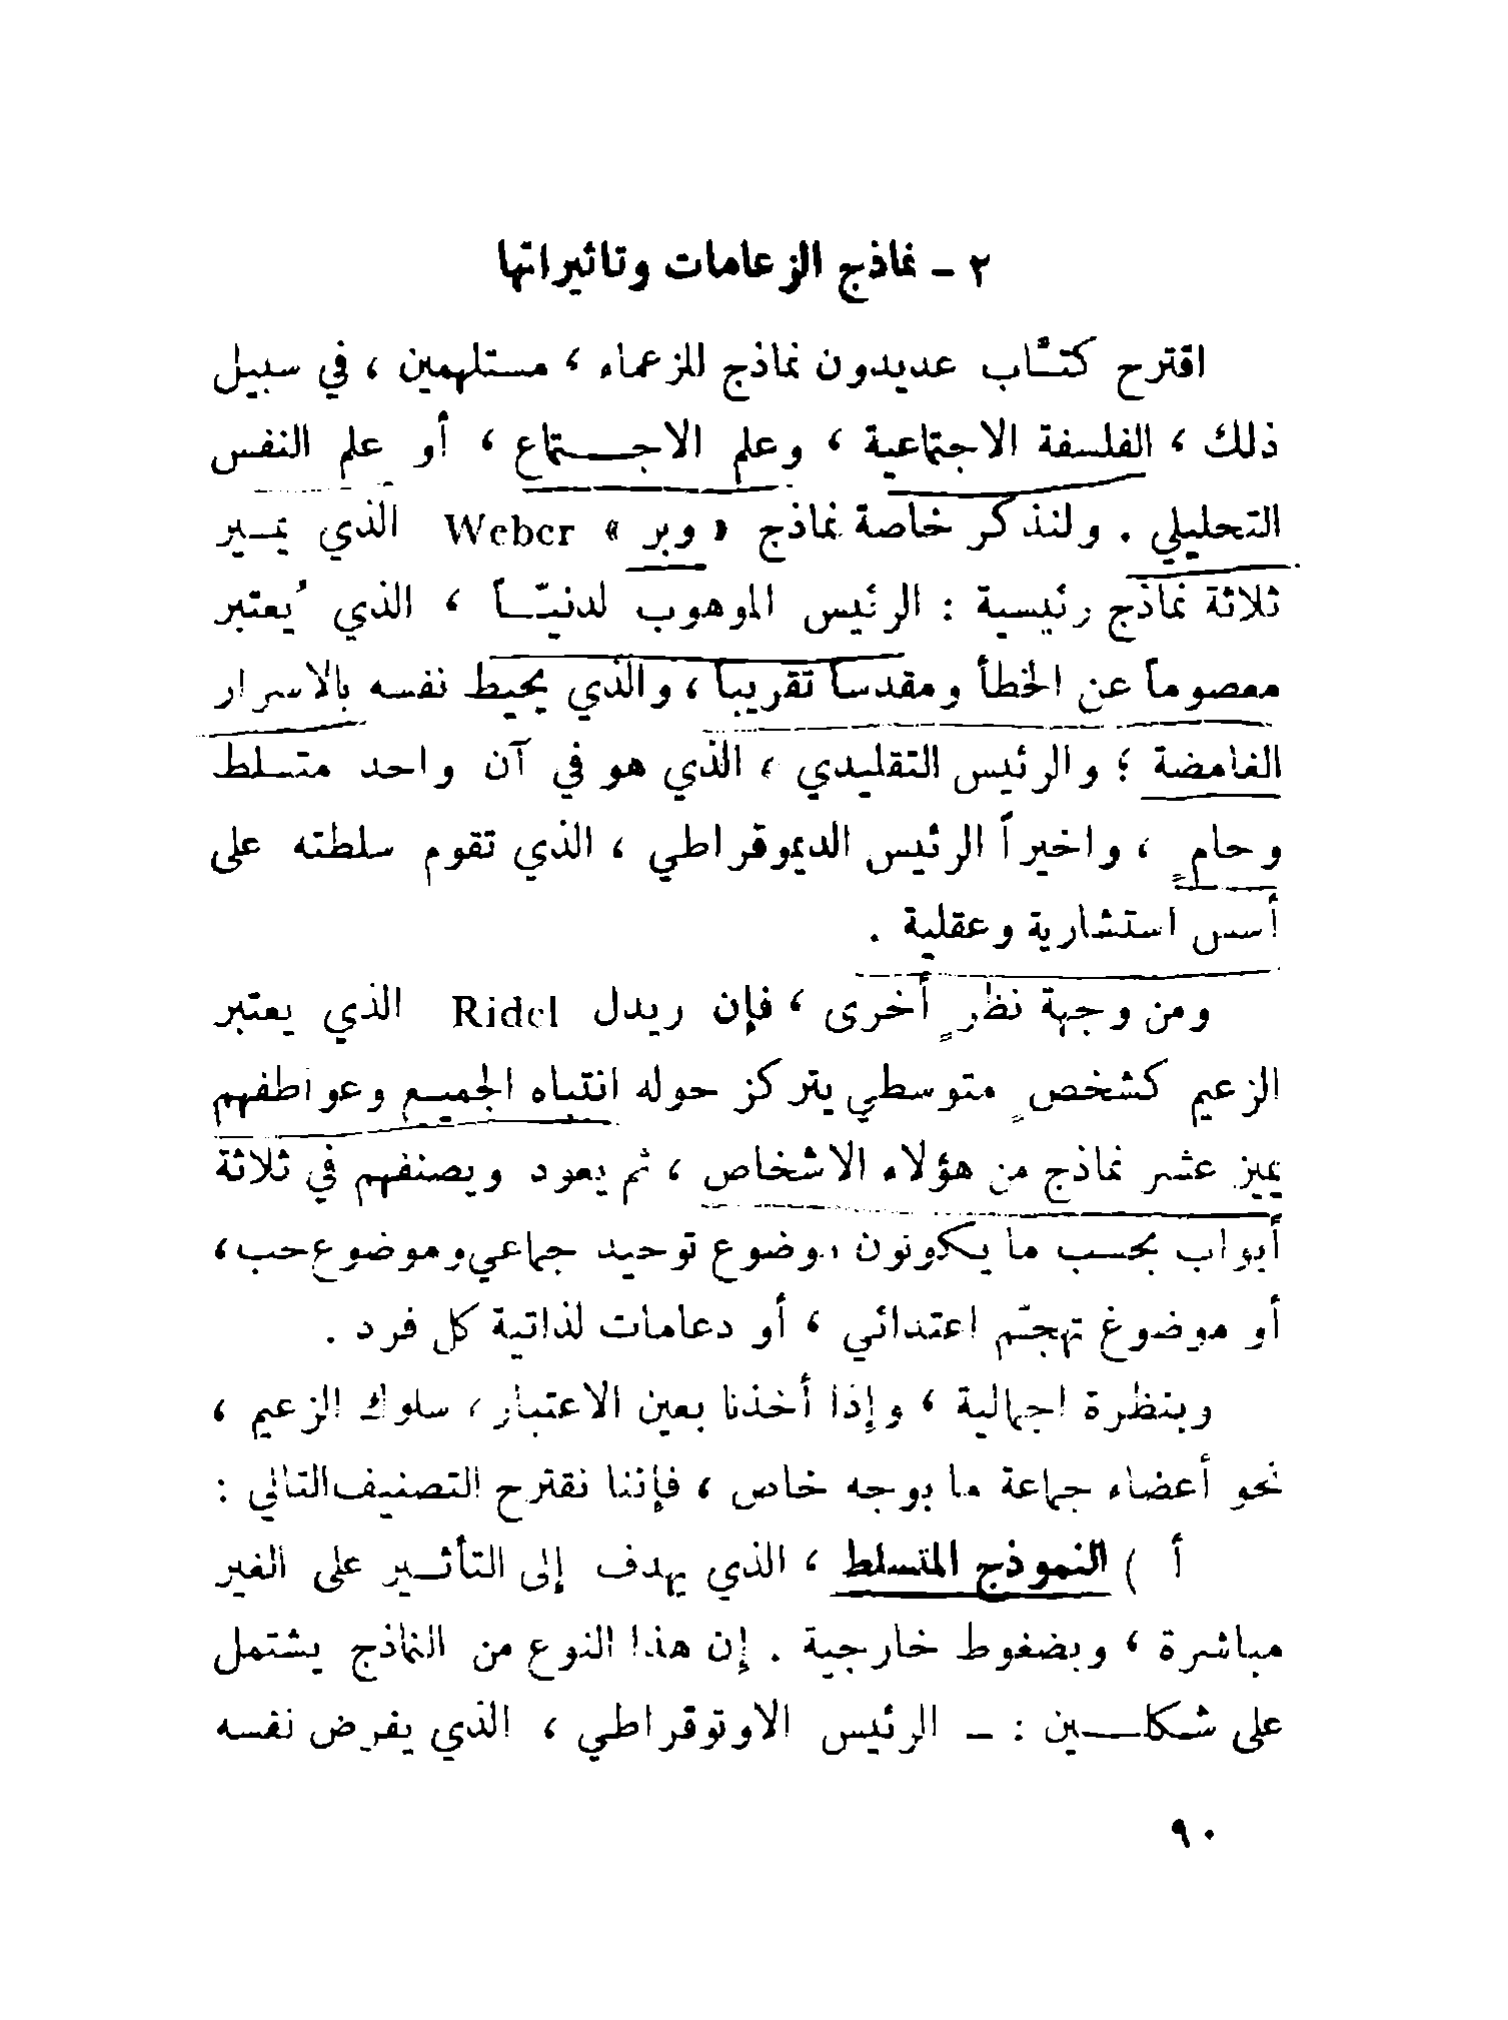 ٢ - نماذج الزعامات وتاثيراتها
اقترح كتّاب عديدون نماذج للزعماء ، مستلهمين ، في سبيل
ذلك ، الفلسفة الاجتماعية ، وعلم الاجتماع ، أو علم النفس
التحليلي . ولنذكر خاصة نماذج « وبر » Weber الذي يميز
ثلاثة نماذج رئيسية : الرئيس الموهوب لدنيّاً ، الذي يُعتبر
معصوماً عن الخطأ ومقدساً تقريباً ، والذي يحيط نفسه بالاسرار
الغامضة ؛ والرئيس التقليدي ، الذي هو في آن واحد متسلط
وحامٍ ، واخيراً الرئيس الديموقراطي ، الذي تقوم سلطته على
أسس استشارية وعقلية .
ومن وجهة نظرٍ أخرى ، فإن ريدل Ridel الذي يعتبر
الزعيم كشخصٍ متوسطي يتركز حوله انتباه الجميع وعواطفهم
يميز عشر نماذج من هؤلاء الاشخاص ، ثم يعود ويصنفهم في ثلاثة
أبواب بحسب ما يكونون موضوع توحيد جماعي وموضوع حب ،
أو موضوع تهجّم اعتدائي ، أو دعامات لذاتية كل فرد .
وبنظرة اجمالية ، وإذا أخذنا بعين الاعتبار ، سلوك الزعيم ،
نحو أعضاء جماعة ما بوجه خاص ، فإننا نقترح التصنيف التالي :
أ ) النموذج المتسلط ، الذي يهدف إلى التأثير على الغير
مباشرة ، وبضغوط خارجية . إن هذا النوع من النماذج يشتمل
على شكلين : - الرئيس الاوتوقراطي ، الذي يفرض نفسه
٩٠